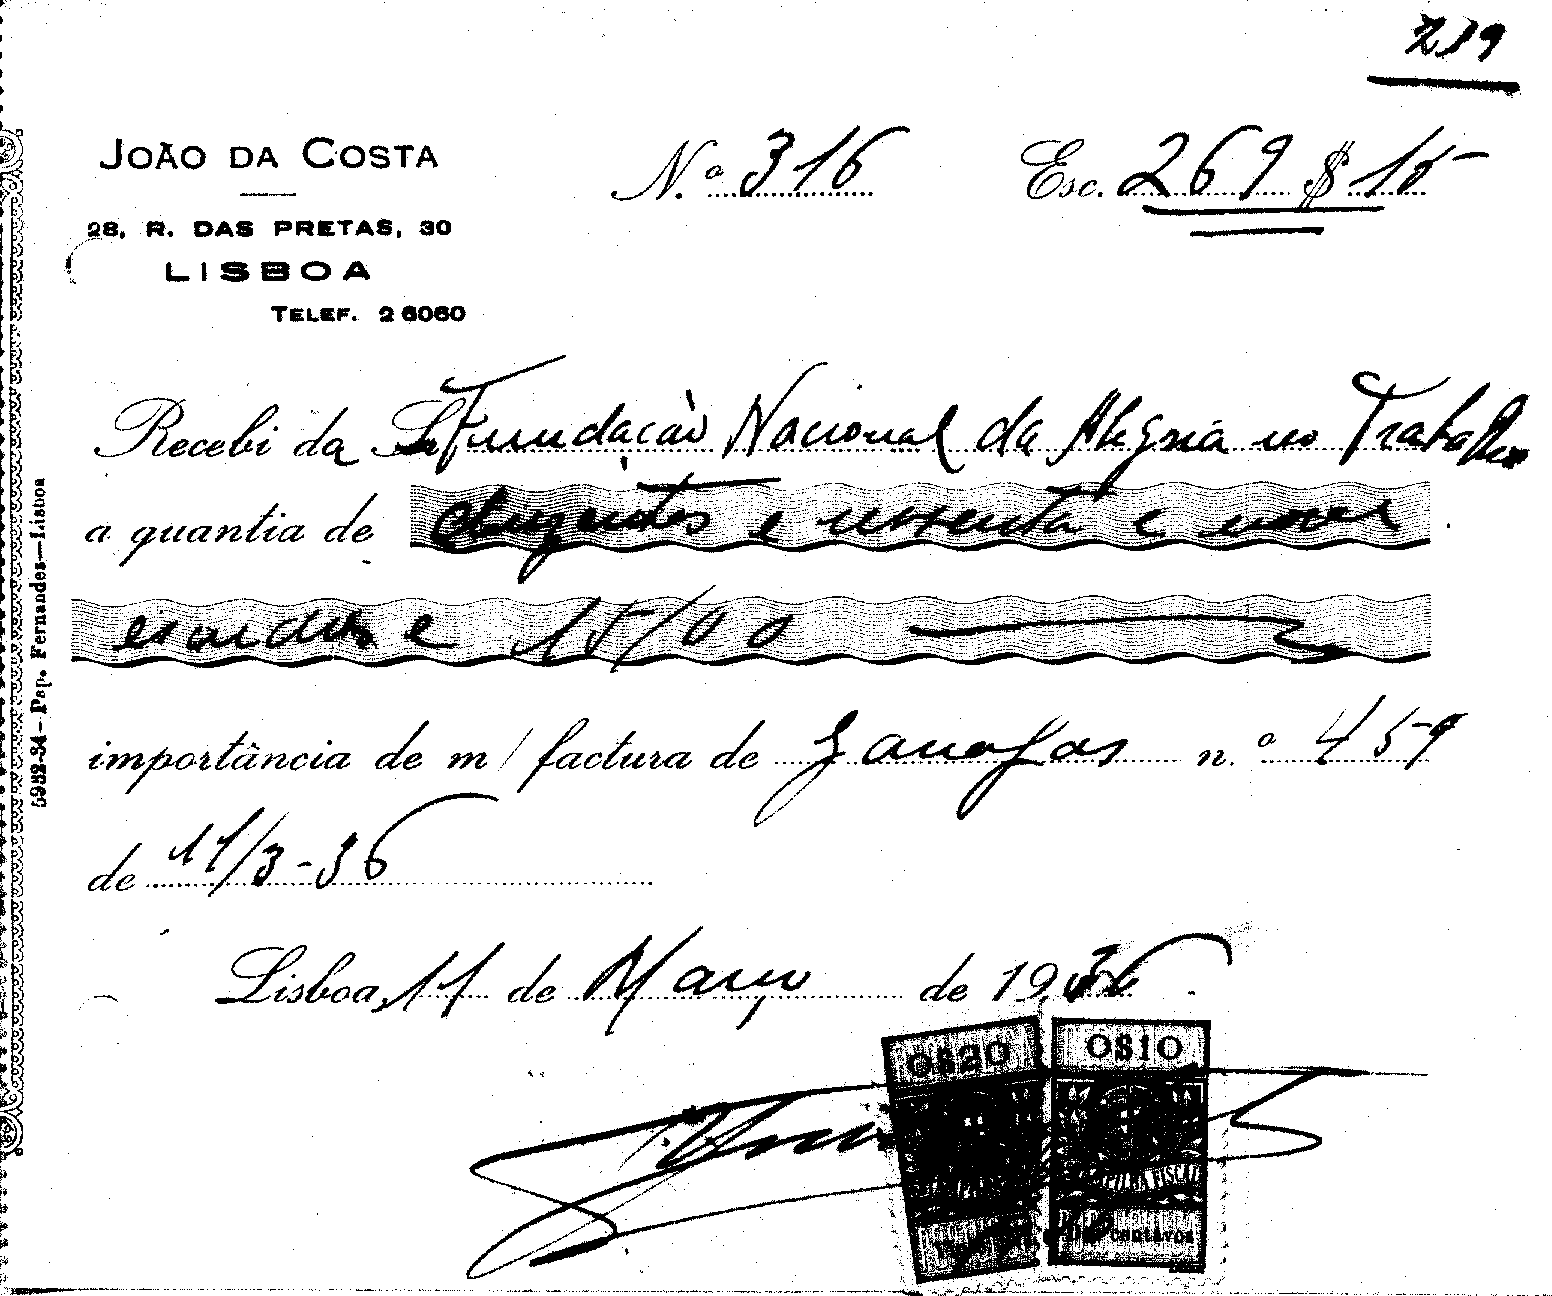 239
JOÃO DA COSTA
N.º 316 Esc. 269 $ 15
28, R. DAS PRETAS, 30
LISBOA
TELEF. 2 6060
Recebi da Fundação Nacional da Alegria no Trabalho
a quantia de duzentos e sessenta e nove
escudos e 15/00
importância de m/ factura de garrafas n.º 459
de 11/3-36
Lisboa, 11 de Março de 1936
0$20 0$10
ESTAMPILHA FISCAL
CENTAVOS
5982-34 - Pap. Fernandes - Lisboa